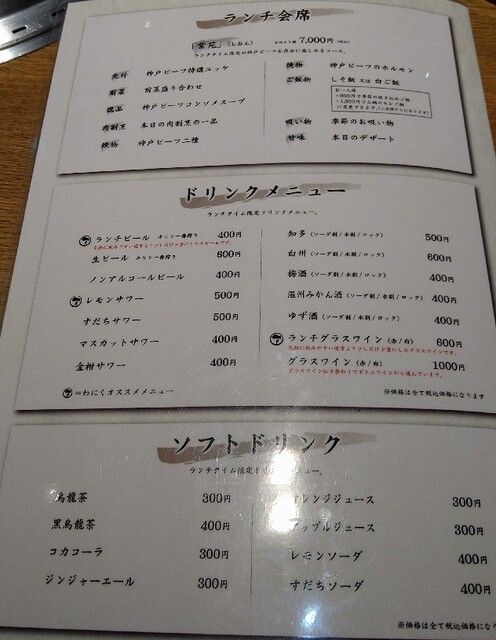 ランチ会席
「紫苑」（しおん） 7,000円（税込）
ランチタイム限定の神戸ビーフを存分に楽しめるコース。
先付 神戸ビーフ特選ユッケ
前菜 前菜盛り合わせ
逸品 神戸ビーフコンソメスープ
肉割烹 本日の肉割烹の一品
焼物 神戸ビーフ二種
焼物 神戸ビーフのホルモン
ご飯物 しそ飯 又は 白ご飯
吸い物 季節のお吸い物
甘味 本日のデザート
ドリンクメニュー
ランチタイム限定ドリンクメニュー。
ランチビール キリン一番搾り 400円
生ビール キリン一番搾り 600円
ノンアルコールビール 400円
レモンサワー 500円
すだちサワー 500円
マスカットサワー 400円
金柑サワー 400円
=わにくオススメメニュー
知多（ソーダ割/水割/ロック） 500円
白州（ソーダ割/水割/ロック） 600円
梅酒（ソーダ割/水割/ロック） 400円
温州みかん酒（ソーダ割/水割/ロック） 400円
ゆず酒（ソーダ割/水割/ロック） 400円
ランチグラスワイン（赤/白） 600円
グラスワイン（赤/白） 1000円
※価格は全て税込価格になります
ソフトドリンク
ランチタイム限定ドリンクメニュー。
烏龍茶 300円
黒烏龍茶 400円
コカコーラ 300円
ジンジャーエール 300円
オレンジジュース 300円
アップルジュース 300円
レモンソーダ 400円
すだちソーダ 400円
※価格は全て税込価格にな